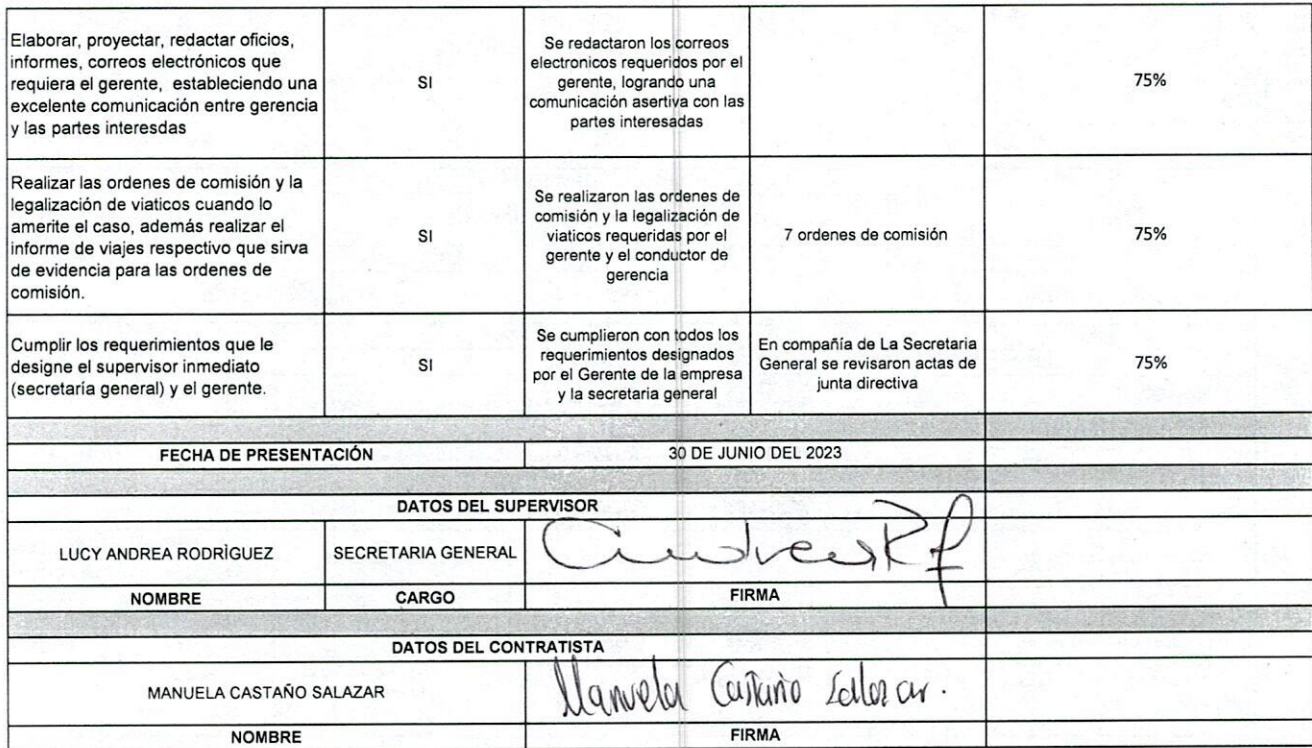 Elaborar, proyectar, redactar oficios,
informes, correos electrónicos que
requiera el gerente, estableciendo una
excelente comunicación entre gerencia
y las partes interesdas
SI
Se redactaron los correos
electronicos requeridos por el
gerente, logrando una
comunicación asertiva con las
partes interesadas
75%
Realizar las ordenes de comisión y la
legalización de viaticos cuando lo
amerite el caso, además realizar el
informe de viajes respectivo que sirva
de evidencia para las ordenes de
comisión.
SI
Se realizaron las ordenes de
comisión y la legalización de
viaticos requeridas por el
gerente y el conductor de
gerencia
7 ordenes de comisión
75%
Cumplir los requerimientos que le
designe el supervisor inmediato
(secretaría general) y el gerente.
SI
Se cumplieron con todos los
requerimientos designados
por el Gerente de la empresa
y la secretaria general
En compañía de La Secretaria
General se revisaron actas de
junta directiva
75%
FECHA DE PRESENTACIÓN
30 DE JUNIO DEL 2023
DATOS DEL SUPERVISOR
LUCY ANDREA RODRÌGUEZ
SECRETARIA GENERAL
AndreaRf
NOMBRE
CARGO
FIRMA
DATOS DEL CONTRATISTA
MANUELA CASTAÑO SALAZAR
Manuela Castaño Salazar.
NOMBRE
FIRMA